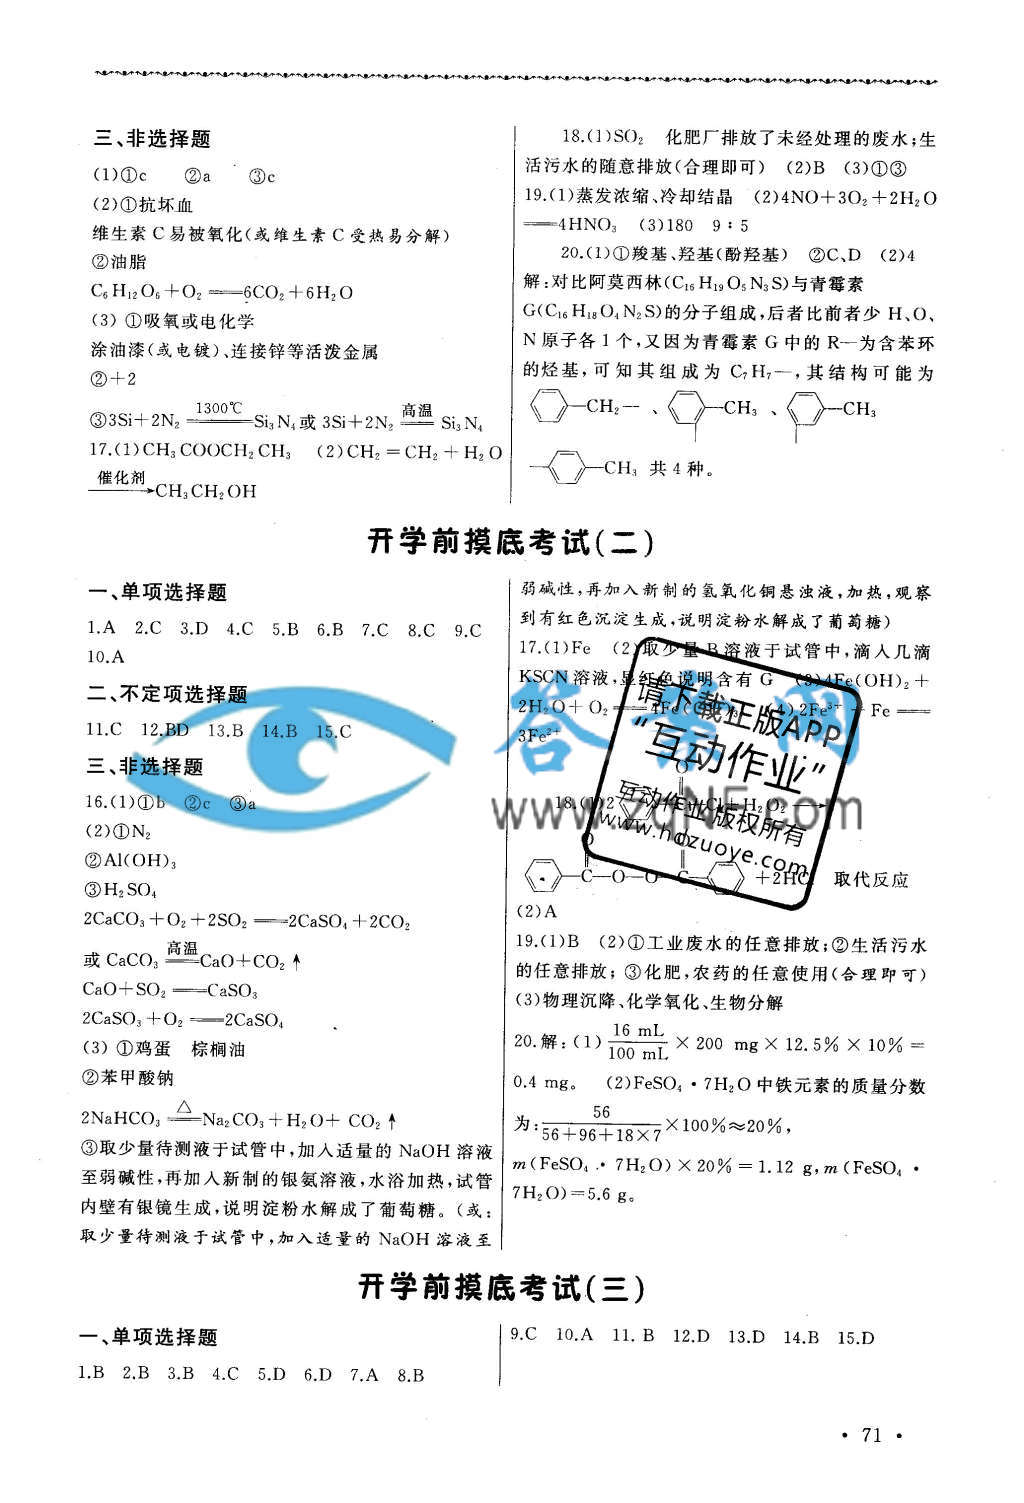 三、非选择题
(1)①c ②a ③c
(2)①抗坏血
维生素 C 易被氧化(或维生素 C 受热易分解)
②油脂
C₆H₁₂O₆+O₂══6CO₂+6H₂O
(3) ①吸氧或电化学
涂油漆(或电镀)、连接锌等活泼金属
②+2
③3Si+2N₂ 1300℃══Si₃N₄或 3Si+2N₂ 高温══ Si₃N₄
17.(1)CH₃COOCH₂CH₃ (2)CH₂=CH₂+H₂O
催化剂→CH₃CH₂OH
18.(1)SO₂ 化肥厂排放了未经处理的废水;生
活污水的随意排放(合理即可) (2)B (3)①③
19.(1)蒸发浓缩、冷却结晶 (2)4NO+3O₂+2H₂O
══4HNO₃ (3)180 9∶5
20.(1)①羧基、羟基(酚羟基) ②C、D (2)4
解:对比阿莫西林(C₁₆H₁₉O₅N₃S)与青霉素
G(C₁₆H₁₈O₄N₂S)的分子组成,后者比前者少 H、O、
N 原子各 1 个,又因为青霉素 G 中的 R—为含苯环
的烃基,可知其组成为 C₇H₇—,其结构可能为
—CH₂— 、 —CH₃ 、 —CH₃
—CH₃ 共 4 种。
开学前摸底考试(二)
一、单项选择题
1.A 2.C 3.D 4.C 5.B 6.B 7.C 8.C 9.C
10.A
二、不定项选择题
11.C 12.BD 13.B 14.B 15.C
三、非选择题
16.(1)①b ②c ③a
(2)①N₂
②Al(OH)₃
③H₂SO₄
2CaCO₃+O₂+2SO₂══2CaSO₄+2CO₂
或 CaCO₃ 高温══CaO+CO₂↑
CaO+SO₂══CaSO₃
2CaSO₃+O₂══2CaSO₄
(3) ①鸡蛋 棕榈油
②苯甲酸钠
2NaHCO₃ △══Na₂CO₃+H₂O+ CO₂↑
③取少量待测液于试管中,加入适量的 NaOH 溶液
至弱碱性,再加入新制的银氨溶液,水浴加热,试管
内壁有银镜生成,说明淀粉水解成了葡萄糖。(或:
取少量待测液于试管中,加入适量的 NaOH 溶液至
弱碱性,再加入新制的氢氧化铜悬浊液,加热,观察
到有红色沉淀生成,说明淀粉水解成了葡萄糖)
17.(1)Fe (2)取少量 B 溶液于试管中,滴人几滴
KSCN 溶液,显红色说明含有 G (3)4Fe(OH)₂+
2H₂O+O₂══4Fe(OH)₃ (4)2Fe³⁺+Fe══
3Fe²⁺
O
18.(1)2 Cl+H₂O₂→
O
—C—O—O—C— +2HCl 取代反应
(2)A
19.(1)B (2)①工业废水的任意排放;②生活污水
的任意排放; ③化肥、农药的任意使用(合理即可)
(3)物理沉降、化学氧化、生物分解
20.解:(1) 16 mL/100 mL × 200 mg × 12.5% × 10% =
0.4 mg。 (2)FeSO₄·7H₂O 中铁元素的质量分数
为: 56/56+96+18×7 ×100%≈20%,
m(FeSO₄·7H₂O)×20%=1.12 g,m(FeSO₄·
7H₂O)=5.6 g。
请下载正版APP
"互动作业"
互动作业版权所有
www.hdzuoye.com
答案网
开学前摸底考试(三)
一、单项选择题
1.B 2.B 3.B 4.C 5.D 6.D 7.A 8.B
9.C 10.A 11. B 12.D 13.D 14.B 15.D
· 71 ·